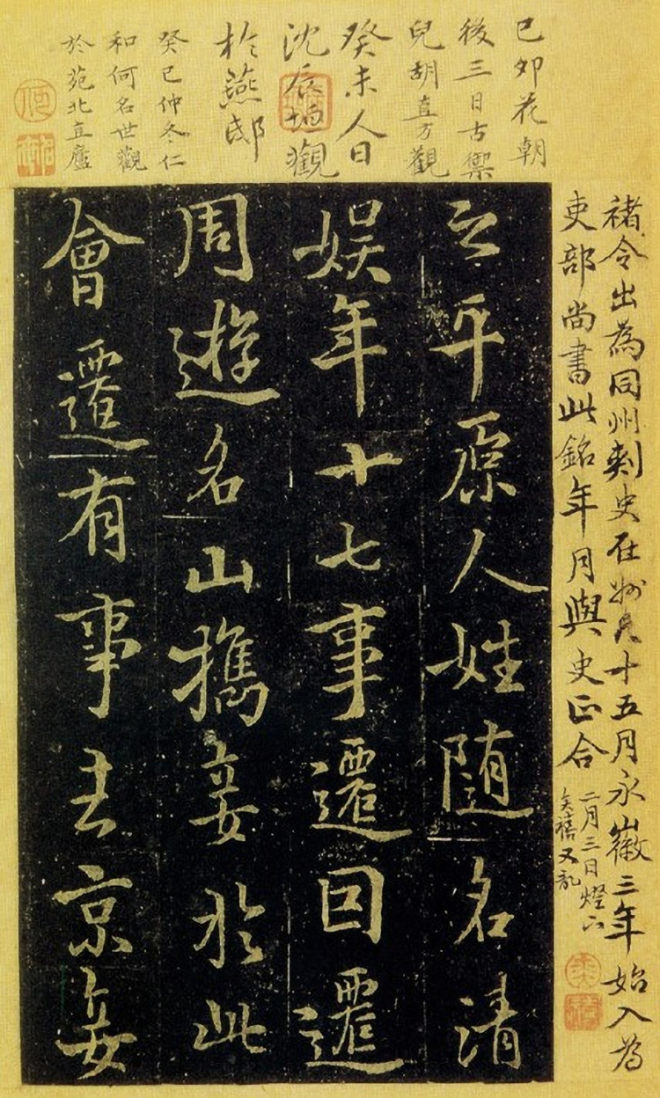 己卯花朝
後三日古禦
兒胡直方觀
癸未人日
沈辰垣觀
於燕邸
癸巳仲冬仁
和何名世觀
於苑北直廬
褚令出為同州刺史在州凡十五月永徽三年始入為
吏部尚書此銘年月與史正合
二月三日燈下
奕禧又記
之平原人姓随名清
娱年十七事遷回遷
周遊名山攜妾於此
會遷有事去京妾